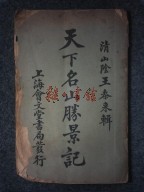 清山陰王泰來輯
天下名山勝景記
上海會文堂書局發行